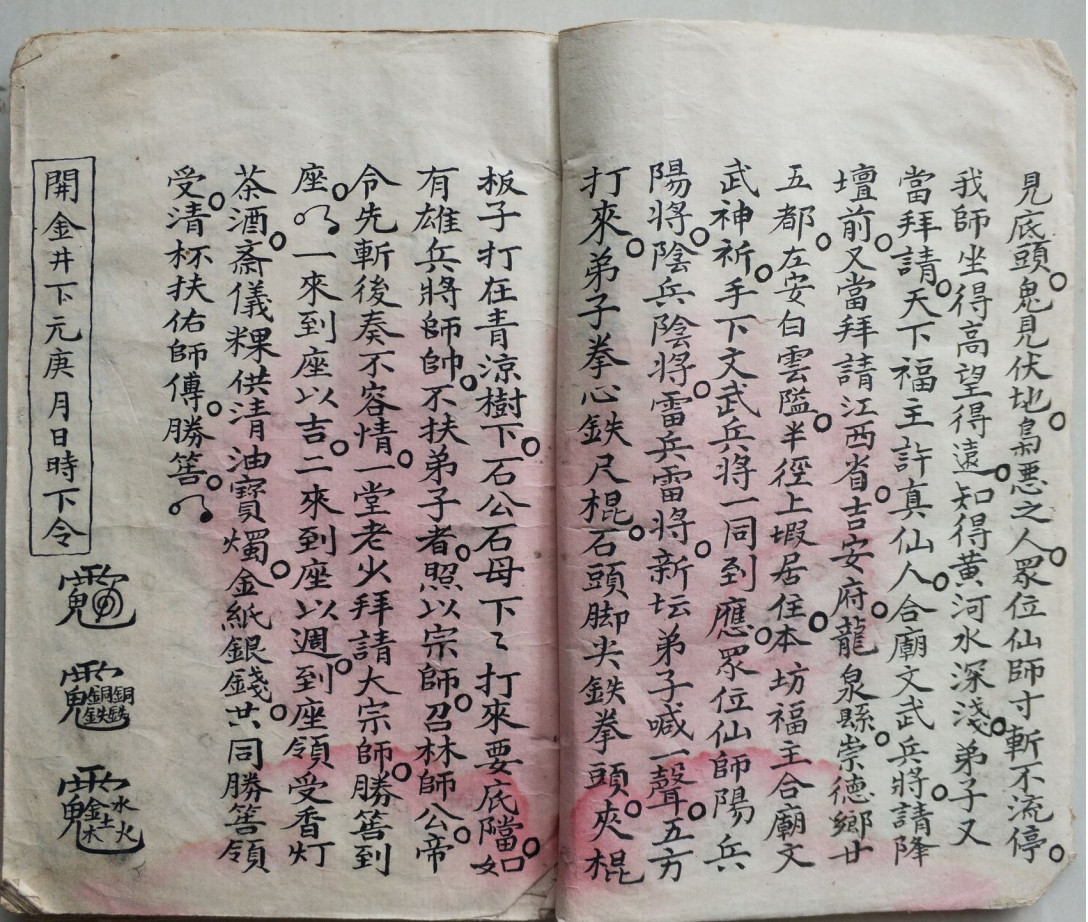 見底頭。鬼見伏地。梟悪之人。眾位仙師寸斬不流停。
我師坐得高望得遠。知得黃河水深淺。弟子又
當拜請。天下福主許真仙人。合廟文武兵將。請降
壇前。又當拜請江西省。吉安府。龍泉縣。崇德鄉廿
五都。左安白雲隘。半徑上塅居住。本坊福主合廟文
武神祈。手下文武兵將一同到應。眾位仙師陽兵
陽將。陰兵陰將。雷兵雷將。新坛弟子喊一聲。五方
打來。弟子拳心鉄尺棍。石頭脚尖鉄拳頭。夾棍
板子打在青涼樹下。石公石母下〻打來要底擋。如
有雄兵將師帥。不扶弟子者。照以宗師。召林師公。帝
令先斬後奏不容情。一堂老少拜請大宗師。勝筶到
座。一來到座以吉。二來到座以週。到座領受香灯
茶酒。斎儀粿供清油寶燭。金紙銀錢。共同勝筶領
受。清杯扶佑師傅。勝筶。
開金井下元庚月日時下令
銅銅
鉄鉄
金水
木土火